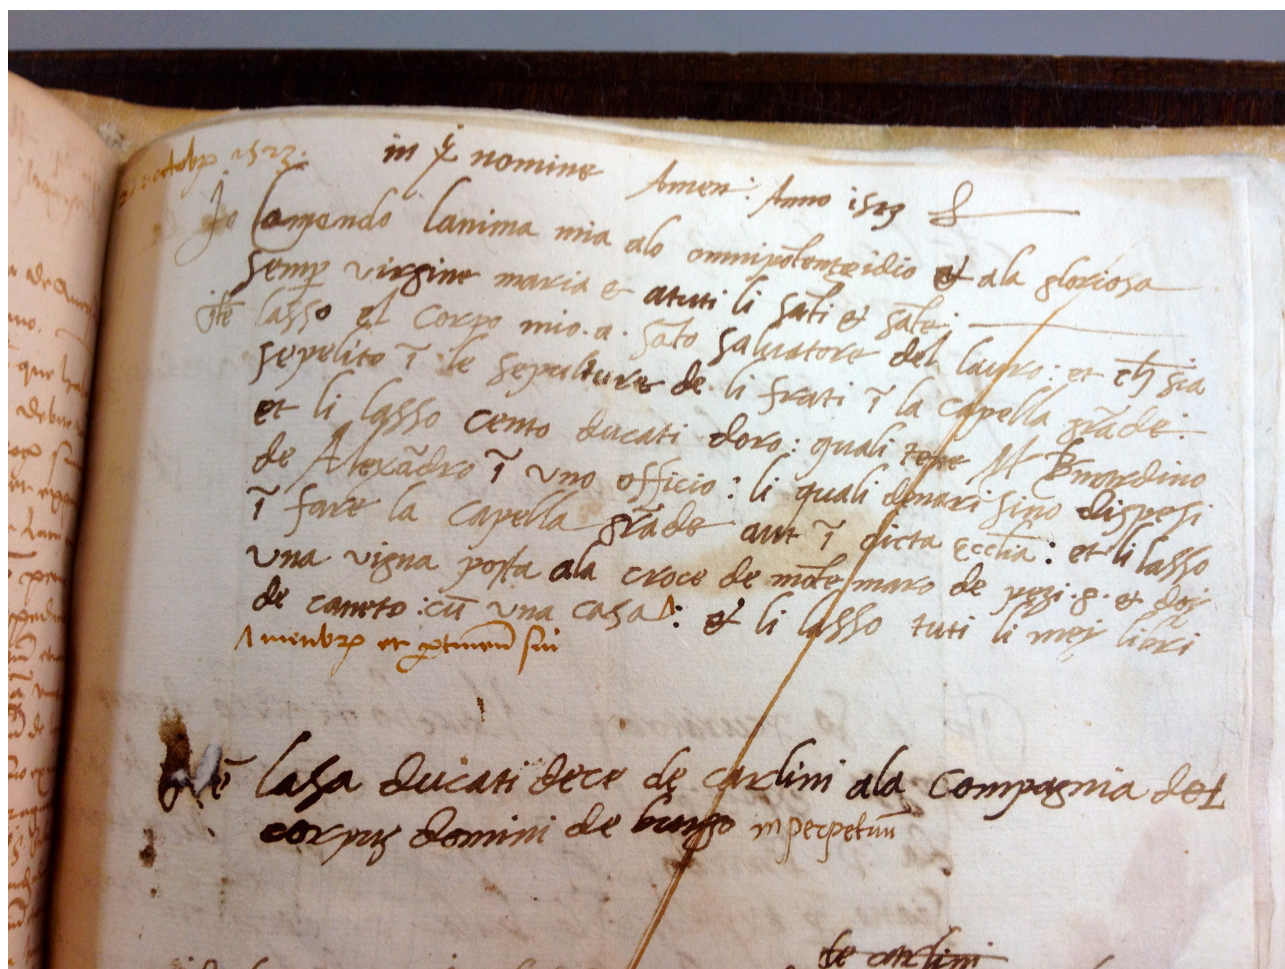 octobr 1523
in xpi nomine Amen: Anno 1523
Io lasso lanima mia alo omnipotente idio et ala gloriosa
semp virgine maria e atuti li sāti et sāte:
itē lasso el corpo mio .a. sāto salvatore del lauro: et ch sia
sepelito ī le sepulture de li frati ī la capella grāde:
et li lasso cento ducati doro: quali tene M Bnardino
de Alexādro ī uno officio: li quali denari sino dispesi
ī fare la capella grāde aut ī dicta ecclia: et li lasso
una vigna posta ala croce de mōte maro de pezi .8. et doi
de caneto: cū una casa: et li lasso tuti li mej libri
membr et ptinen sui
Itē lasa ducati dece de carlini ala compagnia del
corpus domini de burgo in perpetuū
de carlini